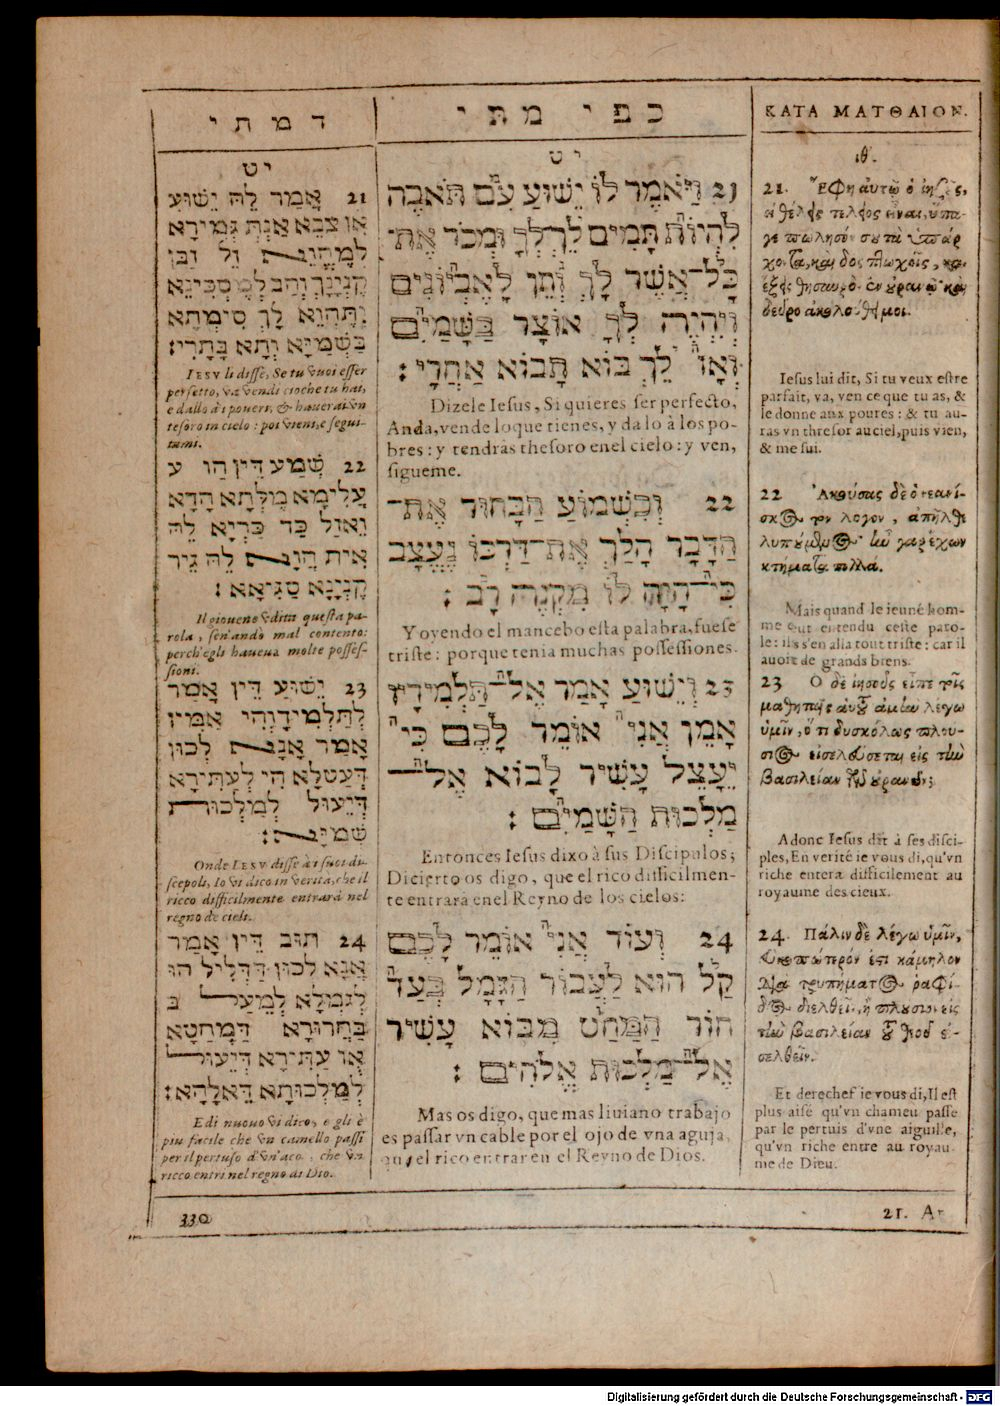 ד מ ת י
יט
21 אֲמַר לֵהּ יֵשׁוּע
אֵן צבֵא אַנְתְּ גְּמִירָא
לְמֶהֱוֵא זֵל זַבֵּן
קֶנְיָנָךְ וְהַב לְמֶסְכִּינֵא
וְתֶהְוֵא לָךְ סִימְתָא
בַּשְׁמַיָּא וְתָא בָּתָרִי׃
IESV li disse, Se tu vuoi esser
perfetto, va vendi cioche tu hai,
e dallo a i poueri, & hauerai vn
tesoro in cielo: poi vieni, e segui-
tami.
22 שְׁמַע דֵּין הַו ע
עֲלֵימָא מֶלְּתָא הָדָא
וֵאזַל כַּד כַּרְיָא לֵהּ
אִית הֲוָא לֵהּ גֵּיר
קֶנְיָנָא סַגִּיאָא׃
Il giouene vditta questa pa-
rola, sen'andò mal contento:
perch'egli haueua molte posses-
sioni.
23 יֵשׁוּע דֵּין אֲמַר
לְתַלְמִידָוְהִי אַמִּין
אָמַר אֲנָא לְכוּן
דְּעַטְלָא הִי לְעַתִּירָא
דְּיֵעוּל לְמַלְכוּת
שְׁמַיָּא׃
Onde IESV disse à i suoi di-
scepoli, Io vi dico in verità, che il
ricco difficilmente entrarà nel
regno de cieli.
24 תּוּב דֵּין אָמַר
אֲנָא לְכוּן דַּדְלִיל הוּ
לְגַמְלָא לְמֵעַל ב
בַּחֲרוּרָא דַּמְחַטָּא
אֵו עַתִּירָא דְּיֵעוּל
לְמַלְכּוּתָא דֵּאלָהָא׃
E di nuouo vi dico, e gli è
piu facile che vn camello passi
per il pertuso d'vn'aco, che vn
ricco entri nel regno di Dio.
כ פ י מ ת י
יט
21 וַיֹּאמֶר לוֹ יֵשׁוּעַ עִם תֹּאבֶה
לִהְיוֹת תָּמִים לֵךְ־לְךָ וּמְכֹר אֶת־
כָּל־אֲשֶׁר לָךְ וְתֵן לָאֶבְיוֹנִים
וְיִהְיֶה לְךָ אוֹצָר בַּשָּׁמַיִם
וְאָז לֵךְ בּוֹא תָּבוֹא אַחֲרָי׃
Dizele Iesus, Si quieres ser perfecto,
Anda, vende loque tienes, y da lo à los po-
bres: y tendràs thesoro enel cielo: y ven,
sigueme.
22 וְכִשְׁמוֹעַ הַבָּחוּר אֶת־
הַדָּבָר הָלַךְ אֶת־דַּרְכּוֹ נֶעֱצָב
כִּי־הָיָה לוֹ מִקְנֶה רָב׃
Y oyendo el mancebo esta palabra, fuese
triste: porque tenia muchas possessiones.
23 וְיֵשׁוּעַ אָמַר אֶל־תַּלְמִידָיו
אָמֵן אֲנִי אוֹמֵר לָכֶם כִּי
יֵעָצֵל עָשִׁיר לָבוֹא אֶל־
מַלְכוּת הַשָּׁמַיִם׃
Entonces Iesus dixo à sus Discipulos;
Dicierto os digo, que el rico difficilmen-
te entrarà enel Reyno de los cielos:
24 וְעוֹד אֲנִי אוֹמֵר לָכֶם
קַל הוּא לַעֲבוֹר הַגָּמָל בְּעַד
חוֹר הַמַּחַט מִבּוֹא עָשִׁיר
אֶל־מַלְכוּת אֱלֹהִים׃
Mas os digo, que mas liuiano trabajo
es passar vn cable por el ojo de vna aguja,
que el rico entrar en el Reyno de Dios.
ΚΑΤΑ ΜΑΤΘΑΙΟΝ.
ιθ.
21. Ἔφη αὐτῷ ὁ ἰησοῦς,
εἰ θέλεις τέλειος εἶναι, ὕπα-
γε πώλησόν σου τὰ ὑπάρ
χοντα, καὶ δὸς πτωχοῖς, καὶ
ἕξεις θησαυρὸν ἐν οὐρανῷ· καὶ
δεῦρο ἀκολούθει μοι.
Iesus lui dit, Si tu veux estre
parfait, va, ven ce que tu as, &
le donne aux poures: & tu au-
ras vn thresor au ciel, puis vien,
& me sui.
22 Ἀκούσας δὲ ὁ νεανί-
σκος τὸν λόγον, ἀπῆλθε
λυπούμενος· ἦν γὰρ ἔχων
κτήματα πολλά.
Mais quand le ieune hom-
me eut entendu ceste paro-
le: il s'en alla tout triste: car il
auoit de grands biens.
23 Ὁ δὲ ἰησοῦς εἶπε τοῖς
μαθηταῖς αὐτοῦ ἀμὴν λέγω
ὑμῖν, ὅτι δυσκόλως πλού-
σιος εἰσελεύσεται εἰς τὴν
βασιλείαν τῶν οὐρανῶν;
Adonc Iesus dit à ses disci-
ples, En verité ie vous di, qu'vn
riche entera difficilement au
royaume des cieux.
24. Πάλιν δὲ λέγω ὑμῖν,
εὐκοπώτερόν ἐστι κάμηλον
διὰ τρυπήματος ῥαφί-
δος διελθεῖν, ἢ πλούσιον εἰς
τὴν βασιλείαν τοῦ θεοῦ εἰ-
σελθεῖν.
Et derechef ie vous di, Il est
plus aisé qu'vn chameu passe
par le pertuis d'vne aiguille,
qu'vn riche entre au royau-
me de Dieu.
330
21. Ar
Digitalisierung gefördert durch die Deutsche Forschungsgemeinschaft - DFG